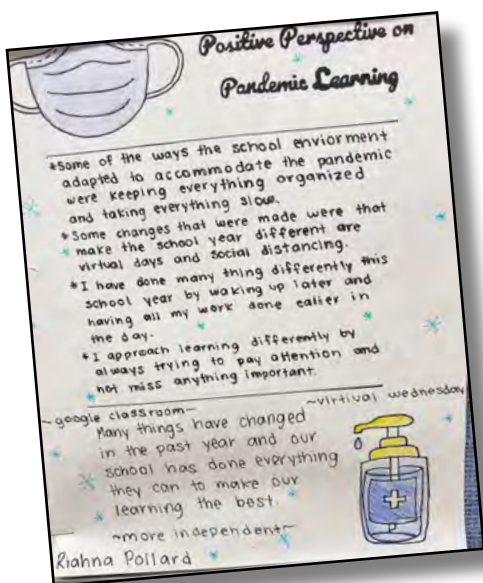 Positive Perspective on
Pandemic Learning
*Some of the ways the school enviorment
adapted to accommodate the pandemic
were keeping everything organized
and taking everything slow.
*Some changes that were made were that
make the school year different are
virtual days and social distancing.
*I have done many thing differently this
school year by waking up later and
having all my work done ealier in
the day.
*I approach learning differently by
always trying to pay attention and
not miss anything important.
~google classroom~
~virtival wednesday
Many things have changed
in the past year and our
school has done everything
they can to make our
learning the best.
~more independent~
Riahna Pollard